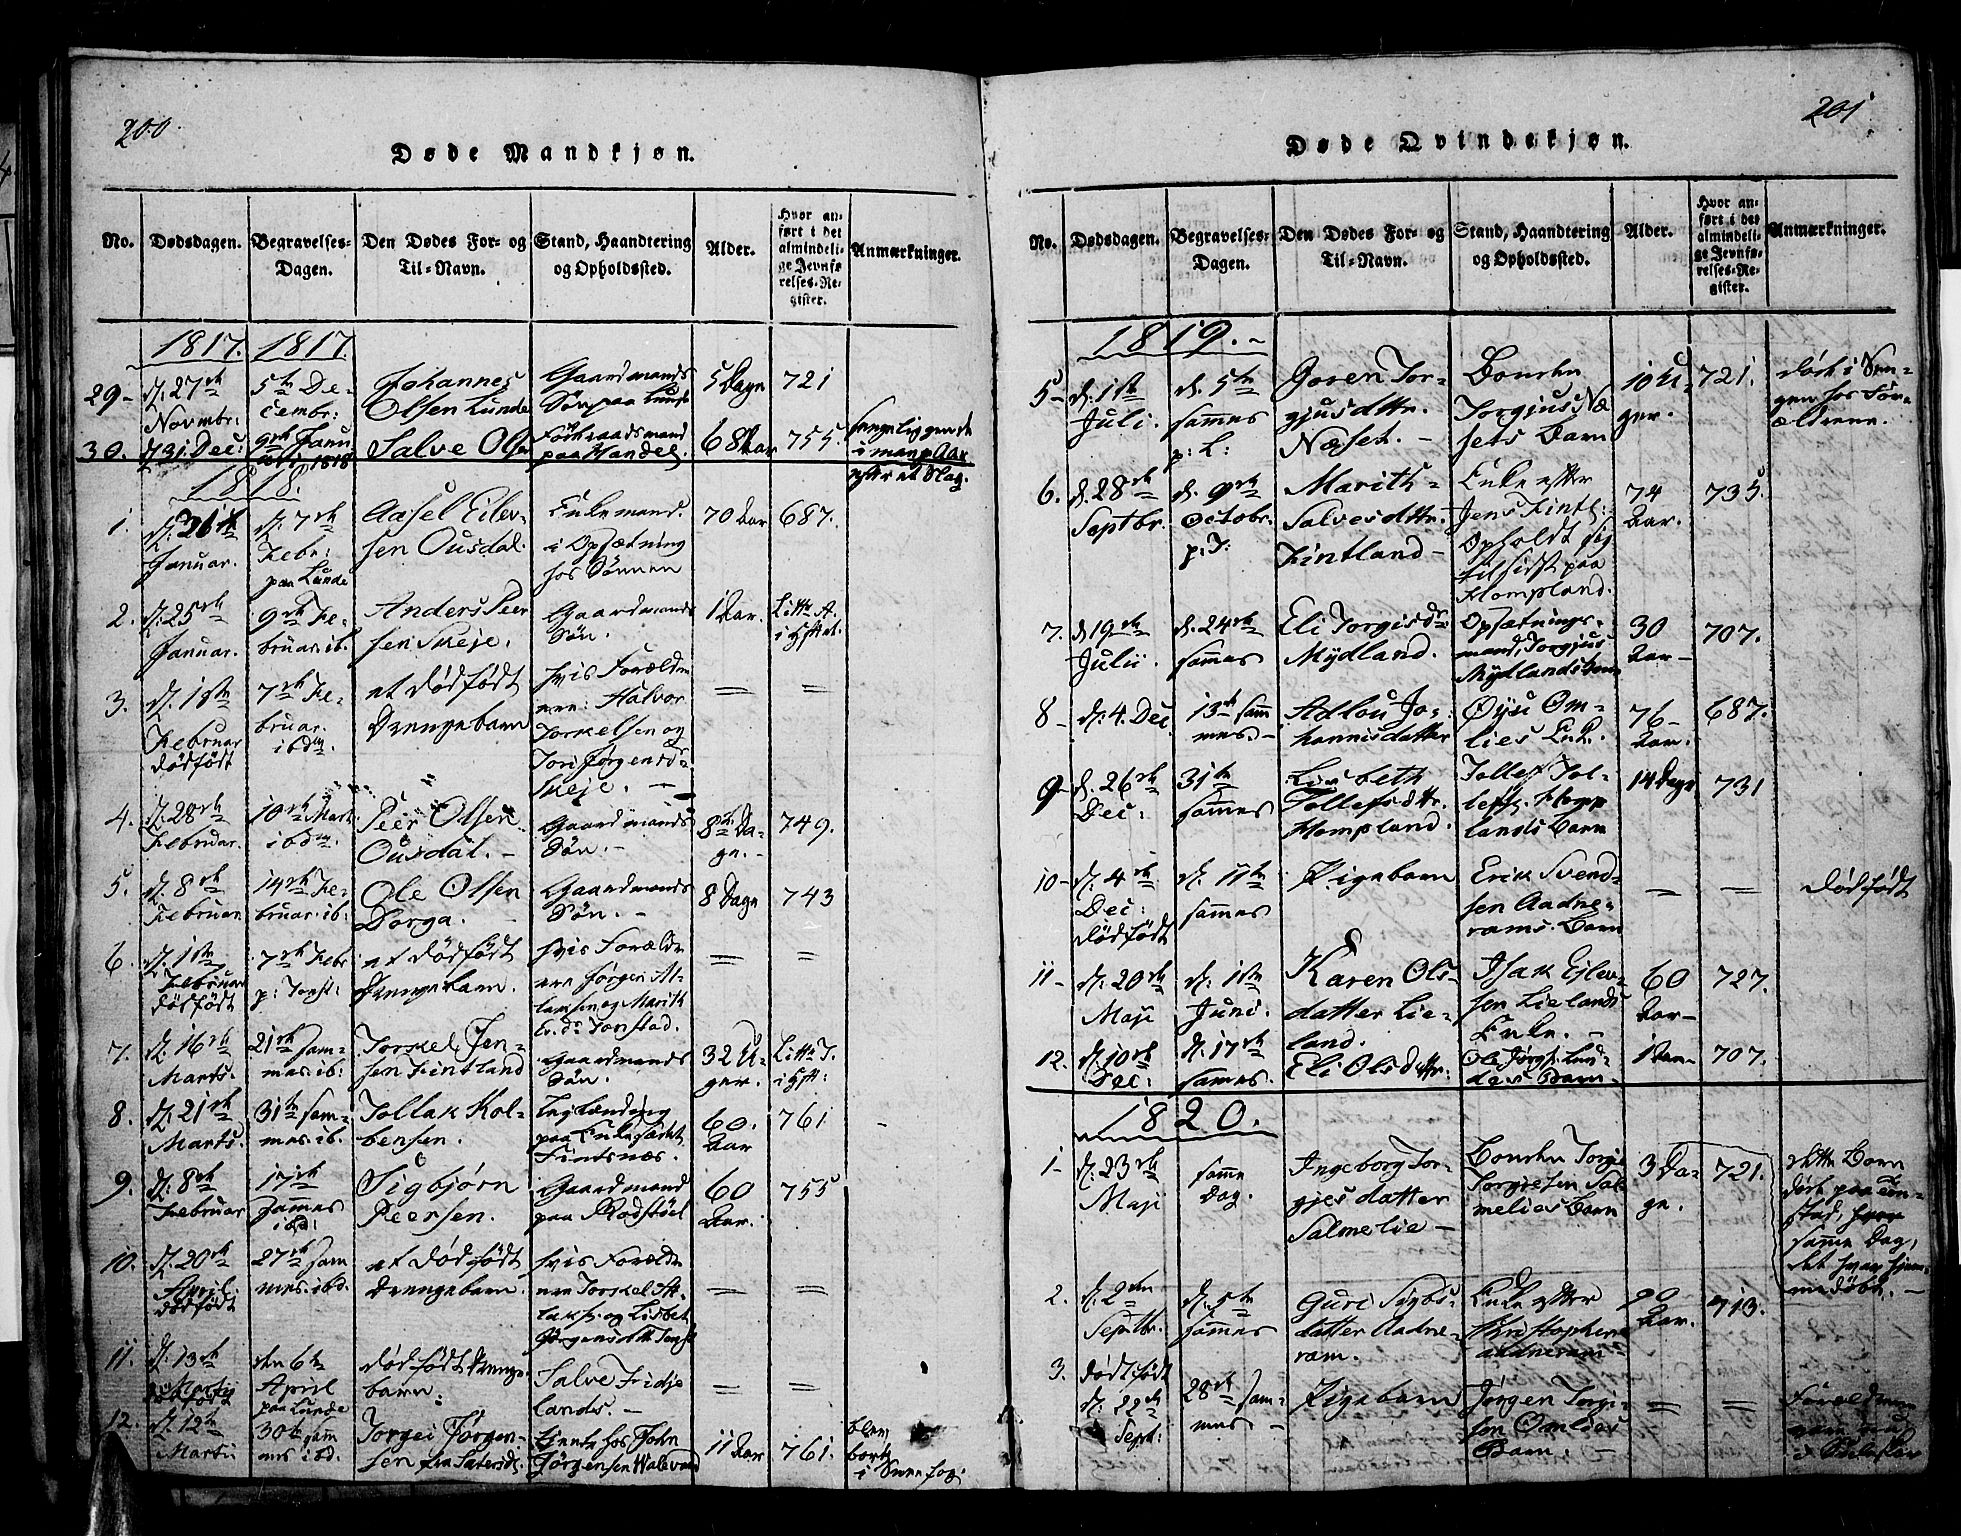 200
Døde Mandkjøn.
No. Dødsdagen. Begravelses-Dagen. Den Dødes For- og Til-Navn. Stand, Haandtering og Opholdssted. Alder. Hvor anført i det almindelige Jevnførelses-Register. Anmærkninger.
1817. 1817.
29- d. 27de Novmbr: 5te Decembr: Johannes Olsen Lunde Gaardmands Søn paa Lunde 5 Dage 721
30. d 31 Dec: 9de Janu 1818 Salve Olsen Føderaadsmand paa Handel. 68 Aar 755. sengeliggende i mange Aar efter et Slag.
1818.
1. d. 26de Januar. d. 7de Febr: paa Lunde Aasel Eilevsen Ousdal. Enkemand. i Opsætning hos Sønnen 70 Aar 687.
2. d. 25de Januar. 9de Februar. ib. Anders Peersen Skeje. Gaardmands Søn. 1 Aar. Litr. A. i Hftet.
3. d. 1ste Februar dødfødt 7de Februar. ibdm et dødfødt Drengebarn hvis Forældre ere: Halvor Torkelsen og Tori Jørgensdr Skeje. = =
4. d. 28de Februar. 10de Mart ibdm. Peer Olsen Ousdal. Gaardmands Søn. 8te Dage. 749.
5. d. 8de Februar. 14de Februar. ib. Ole Olsen Dorga. Gaardmands Søn. 8 Dage 743
6. d. 1ste Februar dødfødt 7de Febr p: Tonst: et dødfødt Drengebarn. hvis Forældre ere Jørgen Atlaksen og Marith Er.dr Tonstad. = =
7. d. 16de Marts. 21de sammes. ib: Torkel Jensen Fintland Gaardmands Søn. 32 Uger. Litr. T. i Hft:
8. d. 21de Marts. 31te sammes. ib. Tollak Kolbensen. Leilænding paa Enkesædet Fintsnæs. 60. Aar 761
9. d. 8de Februar 17de sammes ibd: Sigbjørn Peersen. Gaardmand paa Rødstøel 60 Aar. 755
10. d. 20de April. dødfødt 27de sammes. ibd. et dødfødt Drengebarn. hvis Forældre ere Torkel Atlaks: og Lisbet Jørgensdtt Tonst = =
11. d. 13de Martij dødfødt den 6te April paa Lunde dødfødt Drengebarn: Salve Fidjelands. = =
12. d. 12te Martii 30te sammes ibd. Torgei Jørgensen fra Sætersd. tjente hos John Jørgensen Walevand 11 Aar 761. blev borte i Sneefog:
201
Døde Qvindekjøn.
No. Dødsdagen. Begravelses-Dagen. Den Dødes For- og Til-Navn. Stand, Haandtering og Opholdssted. Alder. Hvor anført i det almindelige Jevnførelses-Register. Anmærkninger.
1819.
5- d. 1ste Juli d. 5te sammes p: L: Goren Torgjusdttr. Næset. Bonden Torgjus Næsets Barn 10 Uger. 721. døde i Sengen hos Forældrene.
6. d. 28de Septbr. d. 9de Octobr. p: T: Marith Salvesdttr. Fintland Enke efter Jens Fintl: Opholdt sig tilsidst paa Hompland. 74 Aar. 735.
7. d 19de Julii. d. 24de sammes Eli Torgisdr Mydland. Opsætningsmand, Torgjus Mydlands Kone 30 Aar 707.
8- d. 4. Dec 13de sammes. Adlou Johannisdatter Øyu Omlies Enke. 76 Aar. 687.
9- d. 26de Dec: 31te sammes Lisbeth Tollefsdttr. Hompland. Tollef Tollefs. Homplands Barn 14 Dage 731
10- d. 4de Dec: dødfødt d. 11te sammes Pigebarn Erik Svendsen Aadnerams Barn = = dødfødt
11- d. 20de Maji d. 1ste Juni. Karen Olsdatter Lieland. Isak Ejlevsen Lielands Enke. 60 Aar 727.
12. d. 10de Dec: d. 17de sammes. Eli Olsdttr. Ole Jørgs: Lundes Barn 1 Aar 707.
1820.
1- d. 23de Maji samme Dag. Ingeborg Torgjesdatter Salmelie Bonden Torgje Torgjesen Salmelies Barn 3 Dage. 721. dette Barn døde paa Tonstad, samme Dag, det var hjemmedøbt.
2. d. 2den Septbr. d. 5te sammes Guri Sigbsdatter Aadneram. Enke efter Christopher Aadneram 90 Aar. 713.
3. dødfødt d. 22de Sept: 28de sammes Pigebarn Jørgen Torgisen Omlies Barn. = = Forældrene